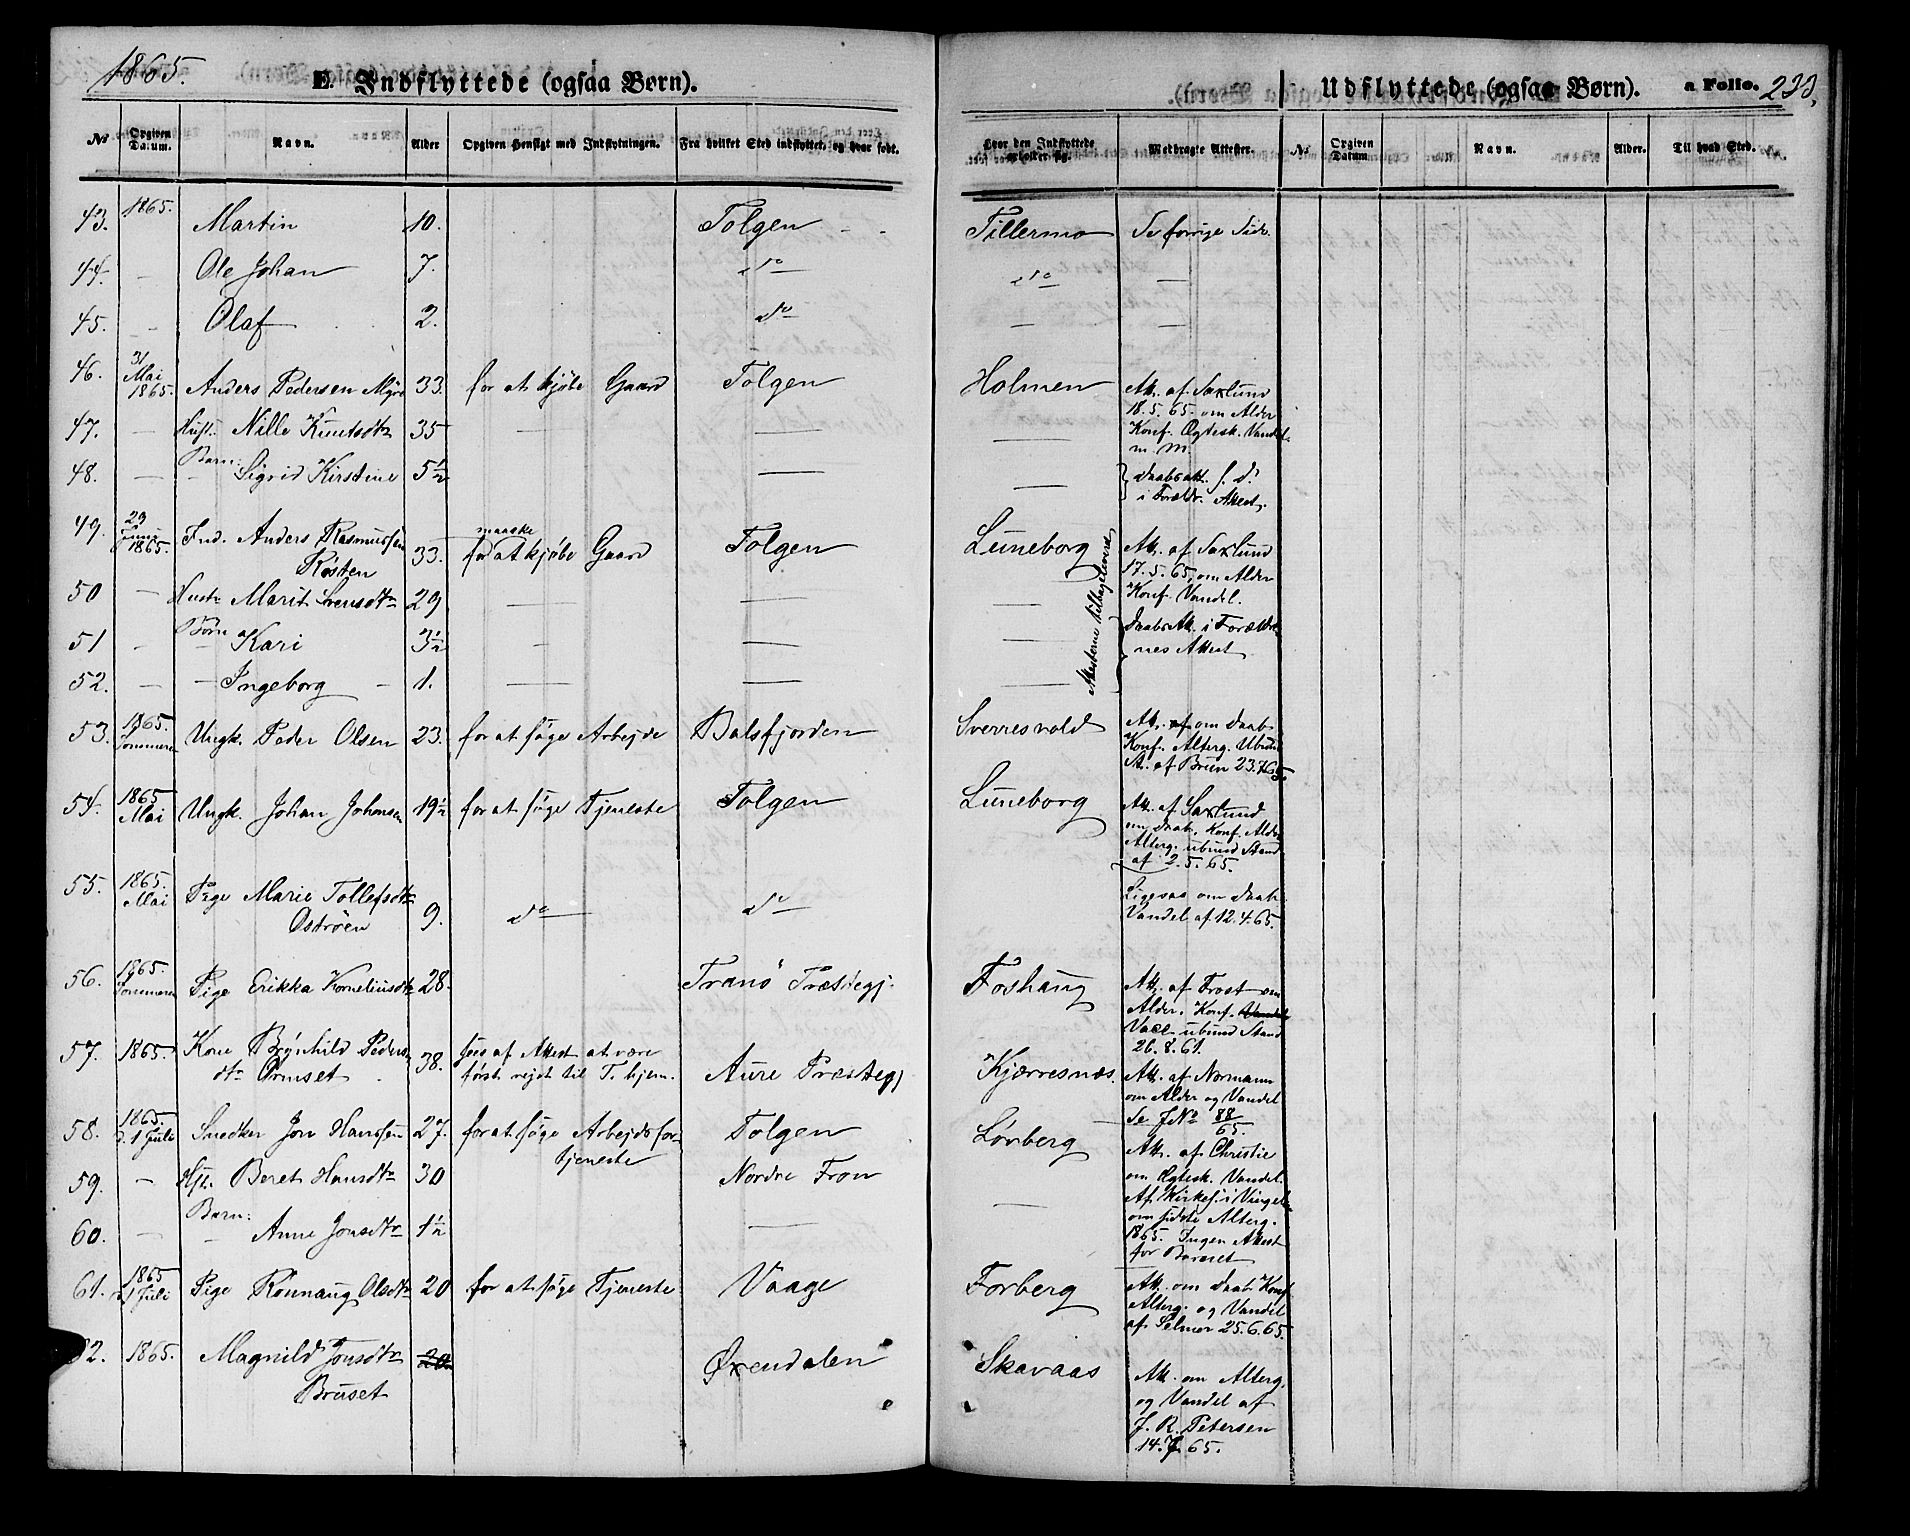 1865.
E. Indflyttede (ogsaa Børn).
Udflyttede (ogsaa Børn).
a Folio. 233.
No Opgiven Datum. Navn. Alder Opgiven Hensigt med Indflytningen. Fra hvilket Sted indflyttet, og hvor født. Hvor den Indflyttede opholder sig. Medbragte Attester. No Opgiven Datum Navn. Alder. Til hvad Sted.
43. 1865. Martin 10. Tolgen Tillermo Se forrige Side.
44. — Ole Johan 7. do do —
45. — Olaf 2. do — —
46. 31 Mai 1865. Anders Pedersen Myre 33. for at kjøbe Gaard Tolgen Holmen Att. af Saxlund
18.5.65. om Alder
Konf. Ægtesk. Vandel
m. m.
47. — Hust. Nille Knutsdtr 35 — — —
48. — Barn: Sigrid Kirstine 5½ — — Daabsatt. f. d.
i Forældr. Attest.
49. 29 Juni 1865. Ind. Anders Rasmussen 33. maaske for at kjøbe Gaard Tolgen Luneborg Att. af Saxlund
Røsten
17.5.65, om Alder
Konf. Vandel.
Attesterne tilbageleveret
50 — Hustr Marit Svensdtr 29 — — —
51 — Børn — Kari 3½ — — — Daabs Att. i Forældre
nes Attest
52. — — Ingeborg 1. — — —
53. 1865. Sommeren Ungk. Peder Olsen 23. for at søge Arbejde Balsfjorden Sverresvold Att. af om Daab
Konf. Alterg. Ubund
St. af Brun 23.7.65.
54. 1865 Mai Ungk. Johan Johansen 19½ for at søge Tjeneste Tolgen Luneborg Att. af Saxlund
om Daab. Konf. Alder
Alterg. ubund Stand
af 2.5.65.
55. 1865. Mai Pige Marie Tollefsdtr 9. do do Ligesaa om Daab
Ostrøen
Vandel af 12.4.65.
56. 1865. Sommeren Pige Erikka Korneliusdtr 28. Tranø Præstegj. Foshaug Att. af Frost om
Alder. Konf. Vandel
Vacc. ubund Stand
26.8.61.
57. 1865. Kone Brynhild Peders 38. sees af Attest at være Aure Præstegj Kjerresnæs. Att. af Normann
dtr Ormset
først rejst til T. hjem.
om Alder og Vandel
Se JNo 88/65.
58. 1865. d. 1 Juli Snedker Jon Hanssen 27. for at søge Arbejdsfor Tolgen Løvberg Att. af Christie
tjeneste
om Ægtesk. Vandel.
59. — Hst. Beret Hansdtr 30 Nordre Fron — Af Kirkesj i Vingelen
om sidste Alterg.
60. — Barn: Anne Jonsdtr 1½ — 1865. Ingen Attest
for Barnet
61. 1865 d. 1 Juli Pige Rønnaug Olsdtr 20 for at søge Tjeneste Vaage Forberg Att. om Daab Konf
Alterg. og Vandel
af Selmer 25.6.65.
62. 1865. Magnild Jonsdtr 20 Øxendalen Skavaas Att. om Alterg.
Bruset
og Vandel af
J. R. Petersen
14.7.65.